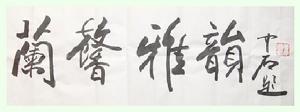 蘭馨雅韻
中石題